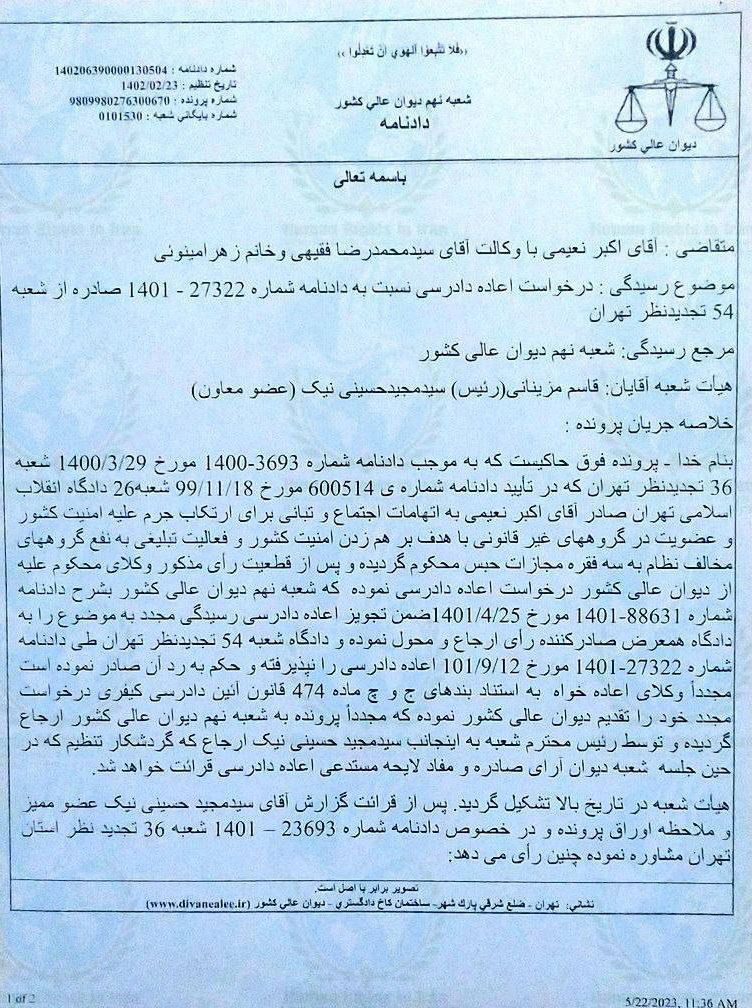 «فلا تتبعوا الهوي ان تعدلوا»
شماره دادنامه : 140206390000130504
تاریخ تنظیم : 1402/02/23
شماره پرونده : 9809980276300670
شماره بایگانی شعبه : 0101530
شعبه نهم دیوان عالی کشور
دادنامه
دیوان عالي کشور
باسمه تعالی
متقاضی : آقای اکبر نعیمی با وکالت آقای سیدمحمدرضا فقیهی وخانم زهرامینوئی
موضوع رسیدگی : درخواست اعاده دادرسی نسبت به دادنامه شماره 27322 - 1401 صادره از شعبه
54 تجدیدنظر تهران
مرجع رسیدگی: شعبه نهم دیوان عالی کشور
هیأت شعبه آقایان: قاسم مزینانی(رئیس) سیدمجیدحسینی نیک (عضو معاون)
خلاصه جریان پرونده :
بنام خدا ـ پرونده فوق حاکیست که به موجب دادنامه شماره 3693-1400 مورخ 1400/3/29 شعبه
36 تجدیدنظر تهران که در تأیید دادنامه شماره ی 600514 مورخ 99/11/18 شعبه26 دادگاه انقلاب
اسلامی تهران صادر آقای اکبر نعیمی به اتهامات اجتماع و تبانی برای ارتکاب جرم علیه امنیت کشور
و عضویت در گروههای غیر قانونی با هدف بر هم زدن امنیت کشور و فعالیت تبلیغی به نفع گروههای
مخالف نظام به سه فقره مجازات حبس محکوم گردیده و پس از قطعیت رأی مذکور وکلای محکوم علیه
از دیوان عالی کشور درخواست اعاده دادرسی نموده که شعبه نهم دیوان عالی کشور بشرح دادنامه
شماره 88631-1401 مورخ 1401/4/25ضمن تجویز اعاده دادرسی رسیدگی مجدد به موضوع را به
دادگاه همعرض صادرکننده رأی ارجاع و محول نموده و دادگاه شعبه 54 تجدیدنظر تهران طی دادنامه
شماره 27322-1401 مورخ 101/9/12 اعاده دادرسی را نپذیرفته و حکم به رد آن صادر نموده است
مجدداً وکلای اعاده خواه به استناد بندهای ج و چ ماده 474 قانون آئین دادرسی کیفری درخواست
مجدد خود را تقدیم دیوان عالی کشور نموده که مجدداً پرونده به شعبه نهم دیوان عالی کشور ارجاع
گردیده و توسط رئیس محترم شعبه به اینجانب سیدمجید حسینی نیک ارجاع که گردشکار تنظیم که در
حین جلسه شعبه دیوان آرای صادره و مفاد لایحه مستدعی اعاده دادرسی قرائت خواهد شد.
هیأت شعبه در تاریخ بالا تشکیل گردید. پس از قرائت گزارش آقای سیدمجید حسینی نیک عضو ممیز
و ملاحظه اوراق پرونده و در خصوص دادنامه شماره 23693 – 1401 شعبه 36 تجدید نظر استان
تهران مشاوره نموده چنین رأی می دهد:
تصویر برابر با اصل است.
نشانی: تهران - ضلع شرقي پارك شهر- ساختمان كاخ دادگستري - دیوان عالي كشور (www.divanealee.ir)
1 of 2
5/22/2023, 11:36 AM